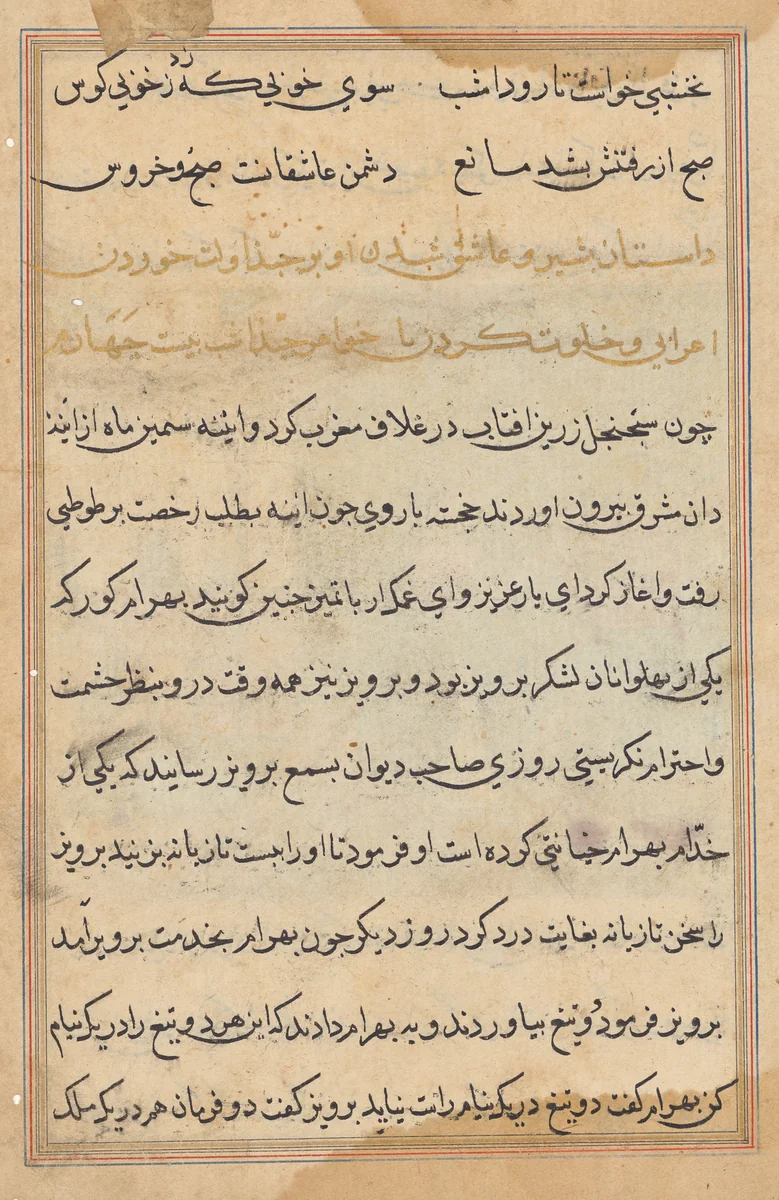 نخشبي خواست تا رود امشب سوي خوبي كه زد ز خوبي كوس
صبح از رفتنش بشد مانع دشمن عاشقانت صبح و خروس
داستان بشير و عاشق شدن او بر جندا ولت خوردن
اعرابي و خلوت كردن با خواهر جندا شب بيست چهارم
چون سجنجل زرين افتاب در غلاف مغرب كرد و اينه سيمين ماه از اينه
دان مشرق بيرون اوردند خجسته با روي جون اينه بطلب رخصت بر طوطي
رفت و اغاز كرد اي يار عزيز و اي غمكسار با تميز جنين كويند بهرام كور كه
يكي از پهلوانان لشكر پرويز بود و پرويز نيز همه وقت درو بنظر حشمت
و احترام نكريستي روزي صاحب ديوان بسمع پرويز رسانيد كه يكي از
خدّام بهرام خيانتي كرده است او فرمود تا او را بيست تازيانه بزنيد پرويز
را سخن تازيانه بغايت درد كرد روز ديكر جون بهرام بخدمت پرويز آمد
پرويز فرمود دو تيغ بياوردند و به بهرام دادند كه اين هر دو تيغ را در يك نيام
كن بهرام كفت دو تيغ در يك نيام راست نيايد پرويز كفت دو فرمان هم در يك ملك